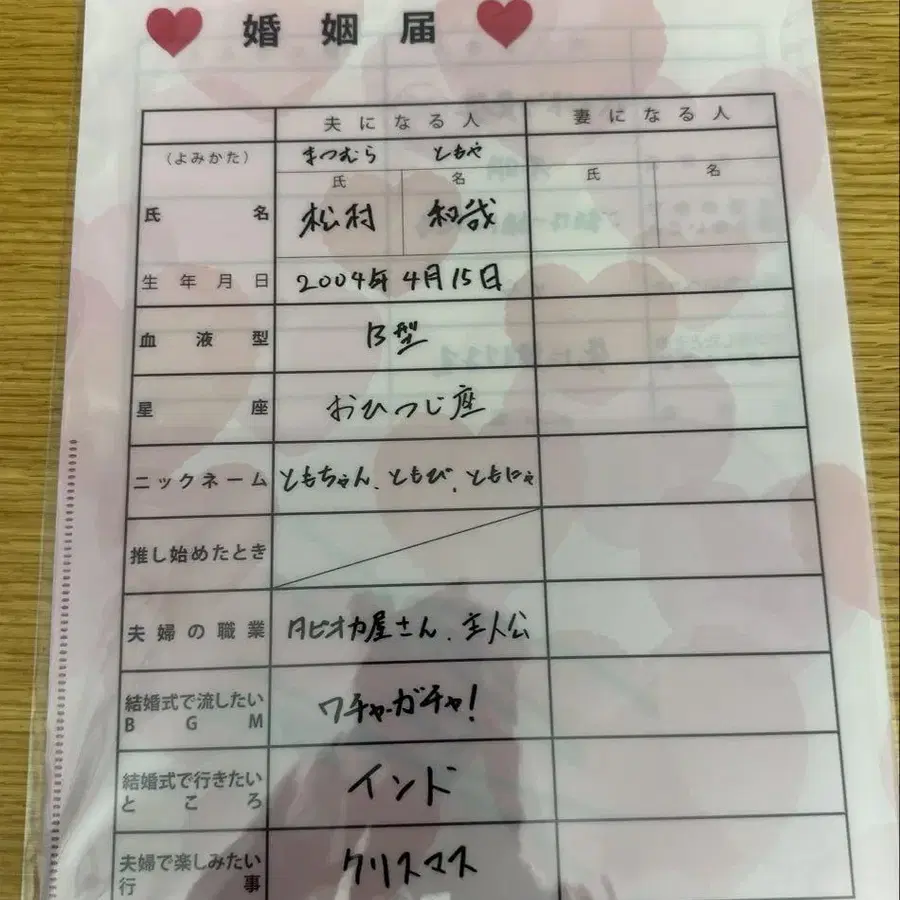 婚姻届
夫になる人 妻になる人
(よみかた) まつむら ともや
氏 名 氏 名
氏名 松村 和哉
生年月日 2004年4月15日
血液型 B型
星座 おひつじ座
ニックネーム ともちゃん、ともび、ともにゃ
推し始めたとき
夫婦の職業 タピオカ屋さん、主人公
結婚式で流したい
BGM ワチャガチャ!
結婚式で行きたい
ところ インド
夫婦で楽しみたい
行事 クリスマス